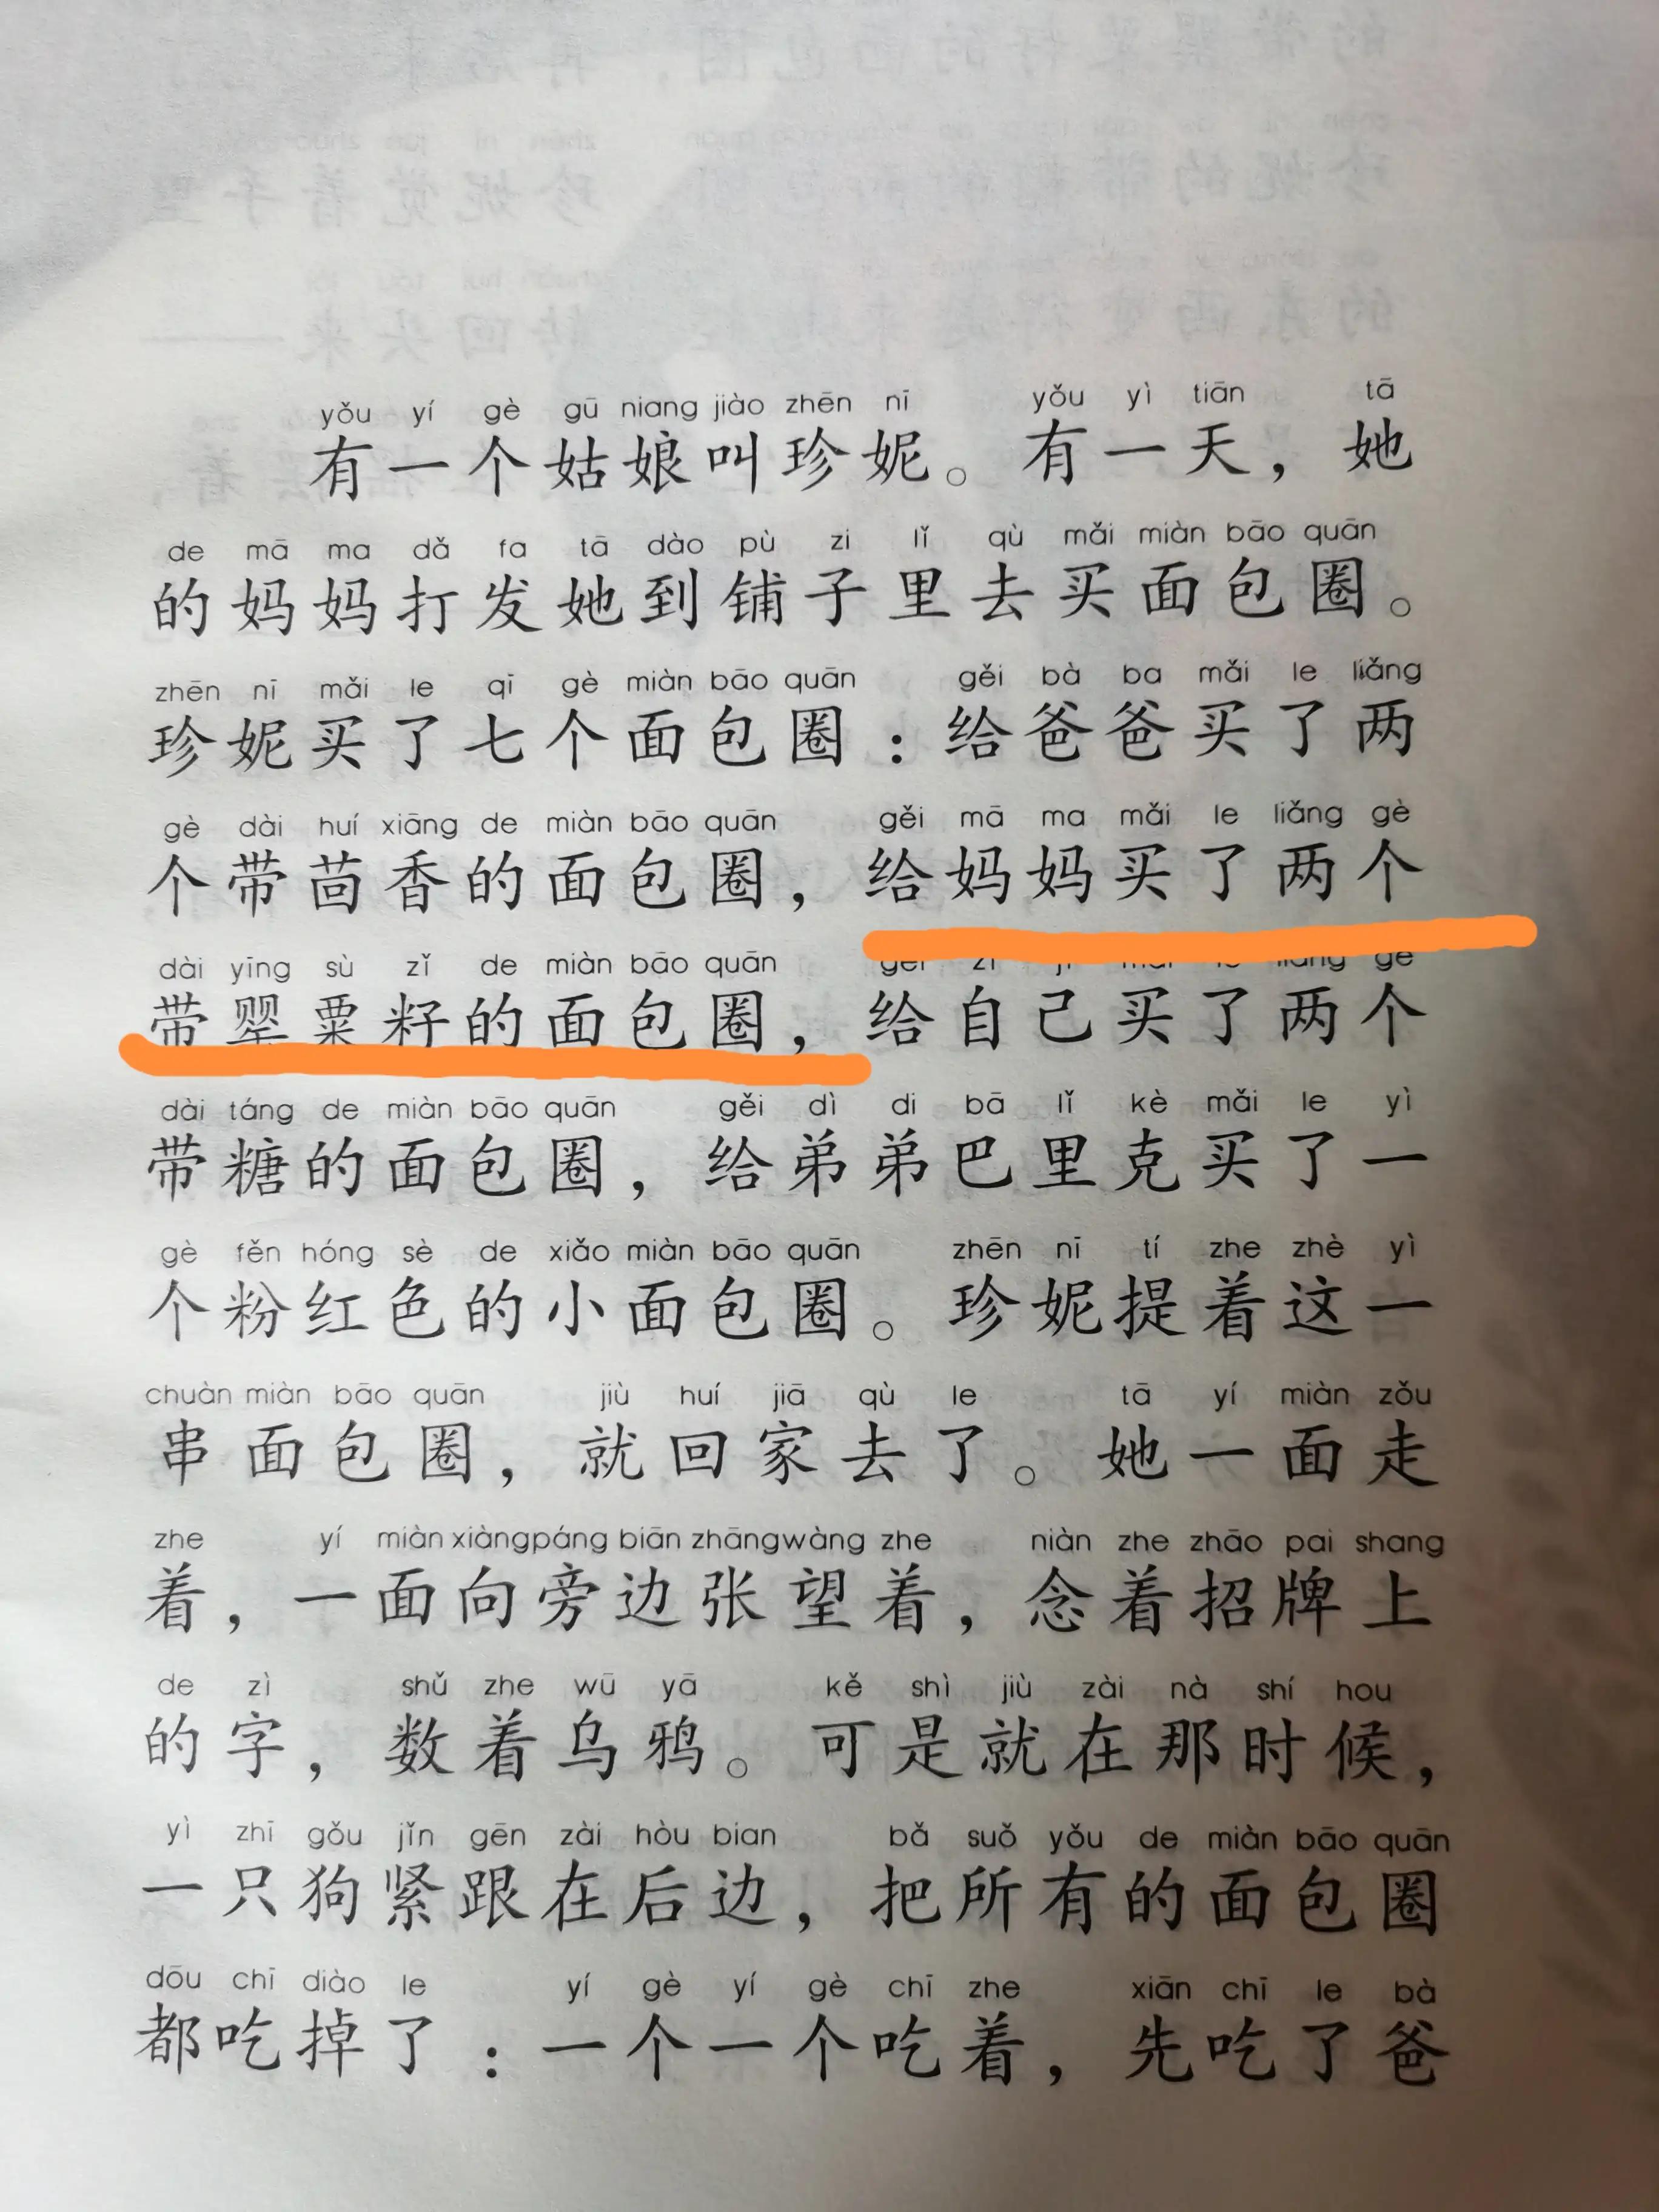 yǒu yí gè gū niang jiào zhēn nī yǒu yì tiān tā
有一个姑娘叫珍妮。有一天，她
de mā ma dǎ fa tā dào pù zi lǐ qù mǎi miàn bāo quān
的妈妈打发她到铺子里去买面包圈。
zhēn nī mǎi le qī gè miàn bāo quān gěi bà ba mǎi le liǎng
珍妮买了七个面包圈：给爸爸买了两
gè dài huí xiāng de miàn bāo quān gěi mā ma mǎi le liǎng gè
个带茴香的面包圈，给妈妈买了两个
dài yīng sù zǐ de miàn bāo quān gěi zì jǐ mǎi le liǎng gè
带罂粟籽的面包圈，给自己买了两个
dài táng de miàn bāo quān gěi dì di bā lǐ kè mǎi le yì
带糖的面包圈，给弟弟巴里克买了一
gè fěn hóng sè de xiǎo miàn bāo quān zhēn nī tí zhe zhè yì
个粉红色的小面包圈。珍妮提着这一
chuàn miàn bāo quān jiù huí jiā qù le tā yí miàn zǒu
串面包圈，就回家去了。她一面走
zhe yí miàn xiàng páng biān zhāng wàng zhe niàn zhe zhāo pai shang
着，一面向旁边张望着，念着招牌上
de zì shǔ zhe wū yā kě shì jiù zài nà shí hou
的字，数着乌鸦。可是就在那时候，
yì zhī gǒu jǐn gēn zài hòu bian bǎ suǒ yǒu de miàn bāo quān
一只狗紧跟在后边，把所有的面包圈
dōu chī diào le yí gè yí gè chī zhe xiān chī le bà
都吃掉了：一个一个吃着，先吃了爸